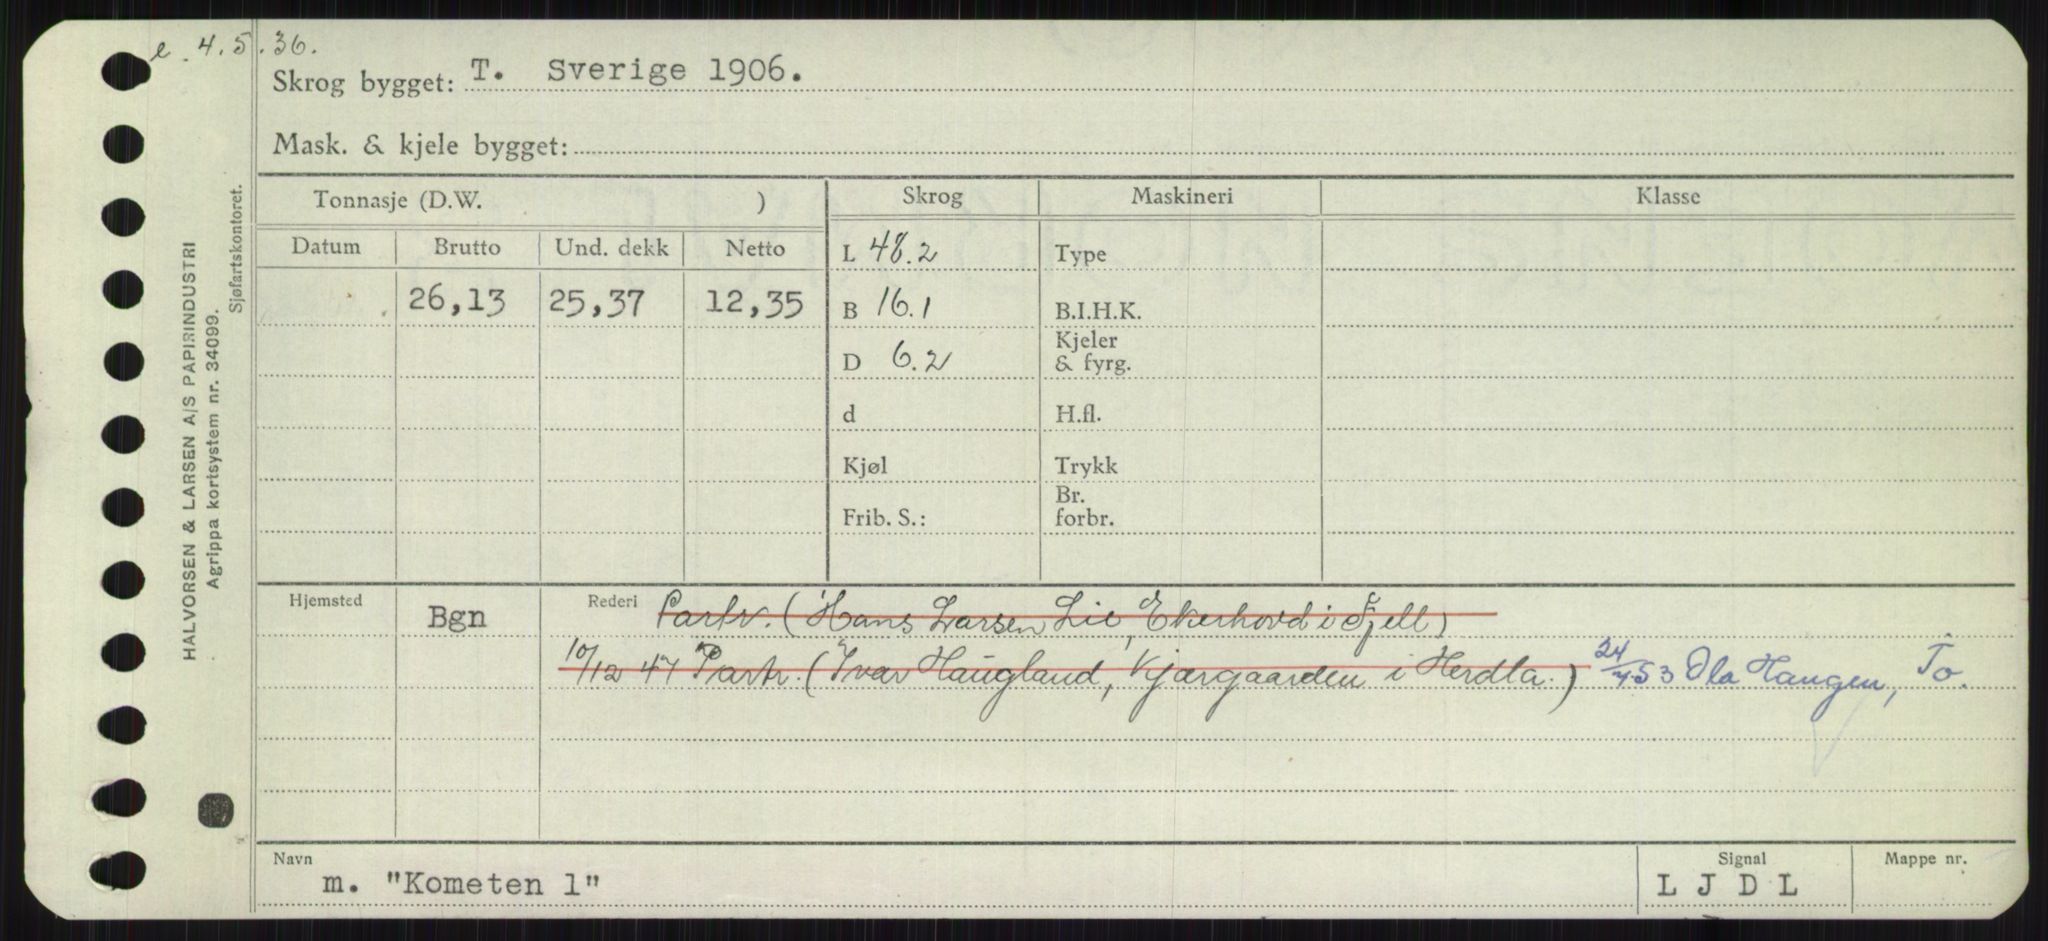 e. 4.5.36.
Skrog bygget: T. Sverige 1906.
Mask. & kjele bygget:
Tonnasje (D.W. )
Skrog
Maskineri
Klasse
Datum
Brutto
Und. dekk
Netto
L 48.2
Type
26,13
25,37
12,35
B 16.1
B.I.H.K.
D 6.2
Kjeler
& fyrg.
d
H.fl.
Kjøl
Trykk
Frib. S.:
Br.
forbr.
Hjemsted
Bgn
Rederi
Partr. (Hans Larsen Lie, Ekerhovd i Fjell)
10/12 47 Partr. (Ivar Haugland, Kjærgaarden i Herdla.) 24/4 53 Ola Haugen, To.
Navn
m. "Kometen 1"
Signal
L J D L
Mappe nr.
HALVORSEN & LARSEN A/S PAPIRINDUSTRI
Agrippa kortsystem nr. 34099.
Sjøfartskontoret.